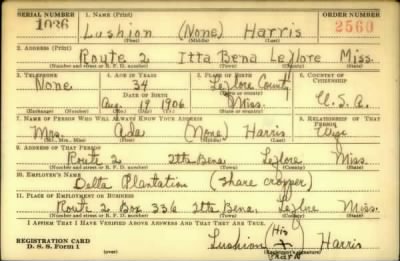 SERIAL NUMBER 1. NAME (Print) ORDER NUMBER
1036 Lushion (None) Harris 2560
(First) (Middle) (Last)
2. ADDRESS (Print)
Route 2 Itta Bena Leflore Miss.
(Number and street or R. F. D. number) (Town) (County) (State)
3. TELEPHONE 4. AGE IN YEARS 5. PLACE OF BIRTH 6. COUNTRY OF CITIZENSHIP
None 34 Leflore County
DATE OF BIRTH
Aug. 19 1906 Miss. U.S.A.
(Exchange) (Number) (Mo.) (Day) (Yr.) (State or country)
7. NAME OF PERSON WHO WILL ALWAYS KNOW YOUR ADDRESS 8. RELATIONSHIP OF THAT PERSON
Mrs. Ada (None) Harris Wife
(Mr., Mrs., Miss) (First) (Middle) (Last)
9. ADDRESS OF THAT PERSON
Route 2 Itta Bena, Leflore Miss.
(Number and street or R. F. D. number) (Town) (County) (State)
10. EMPLOYER'S NAME
Delta Plantation (Share cropper)
11. PLACE OF EMPLOYMENT OR BUSINESS
Route 2, Box 336 Itta Bena, Leflore Miss.
(Number and street or R. F. D. number) (Town) (County) (State)
I AFFIRM THAT I HAVE VERIFIED ABOVE ANSWERS AND THAT THEY ARE TRUE.
REGISTRATION CARD Lushion (His X Mark) Harris
D. S. S. Form 1 (over) (Registrant's signature)